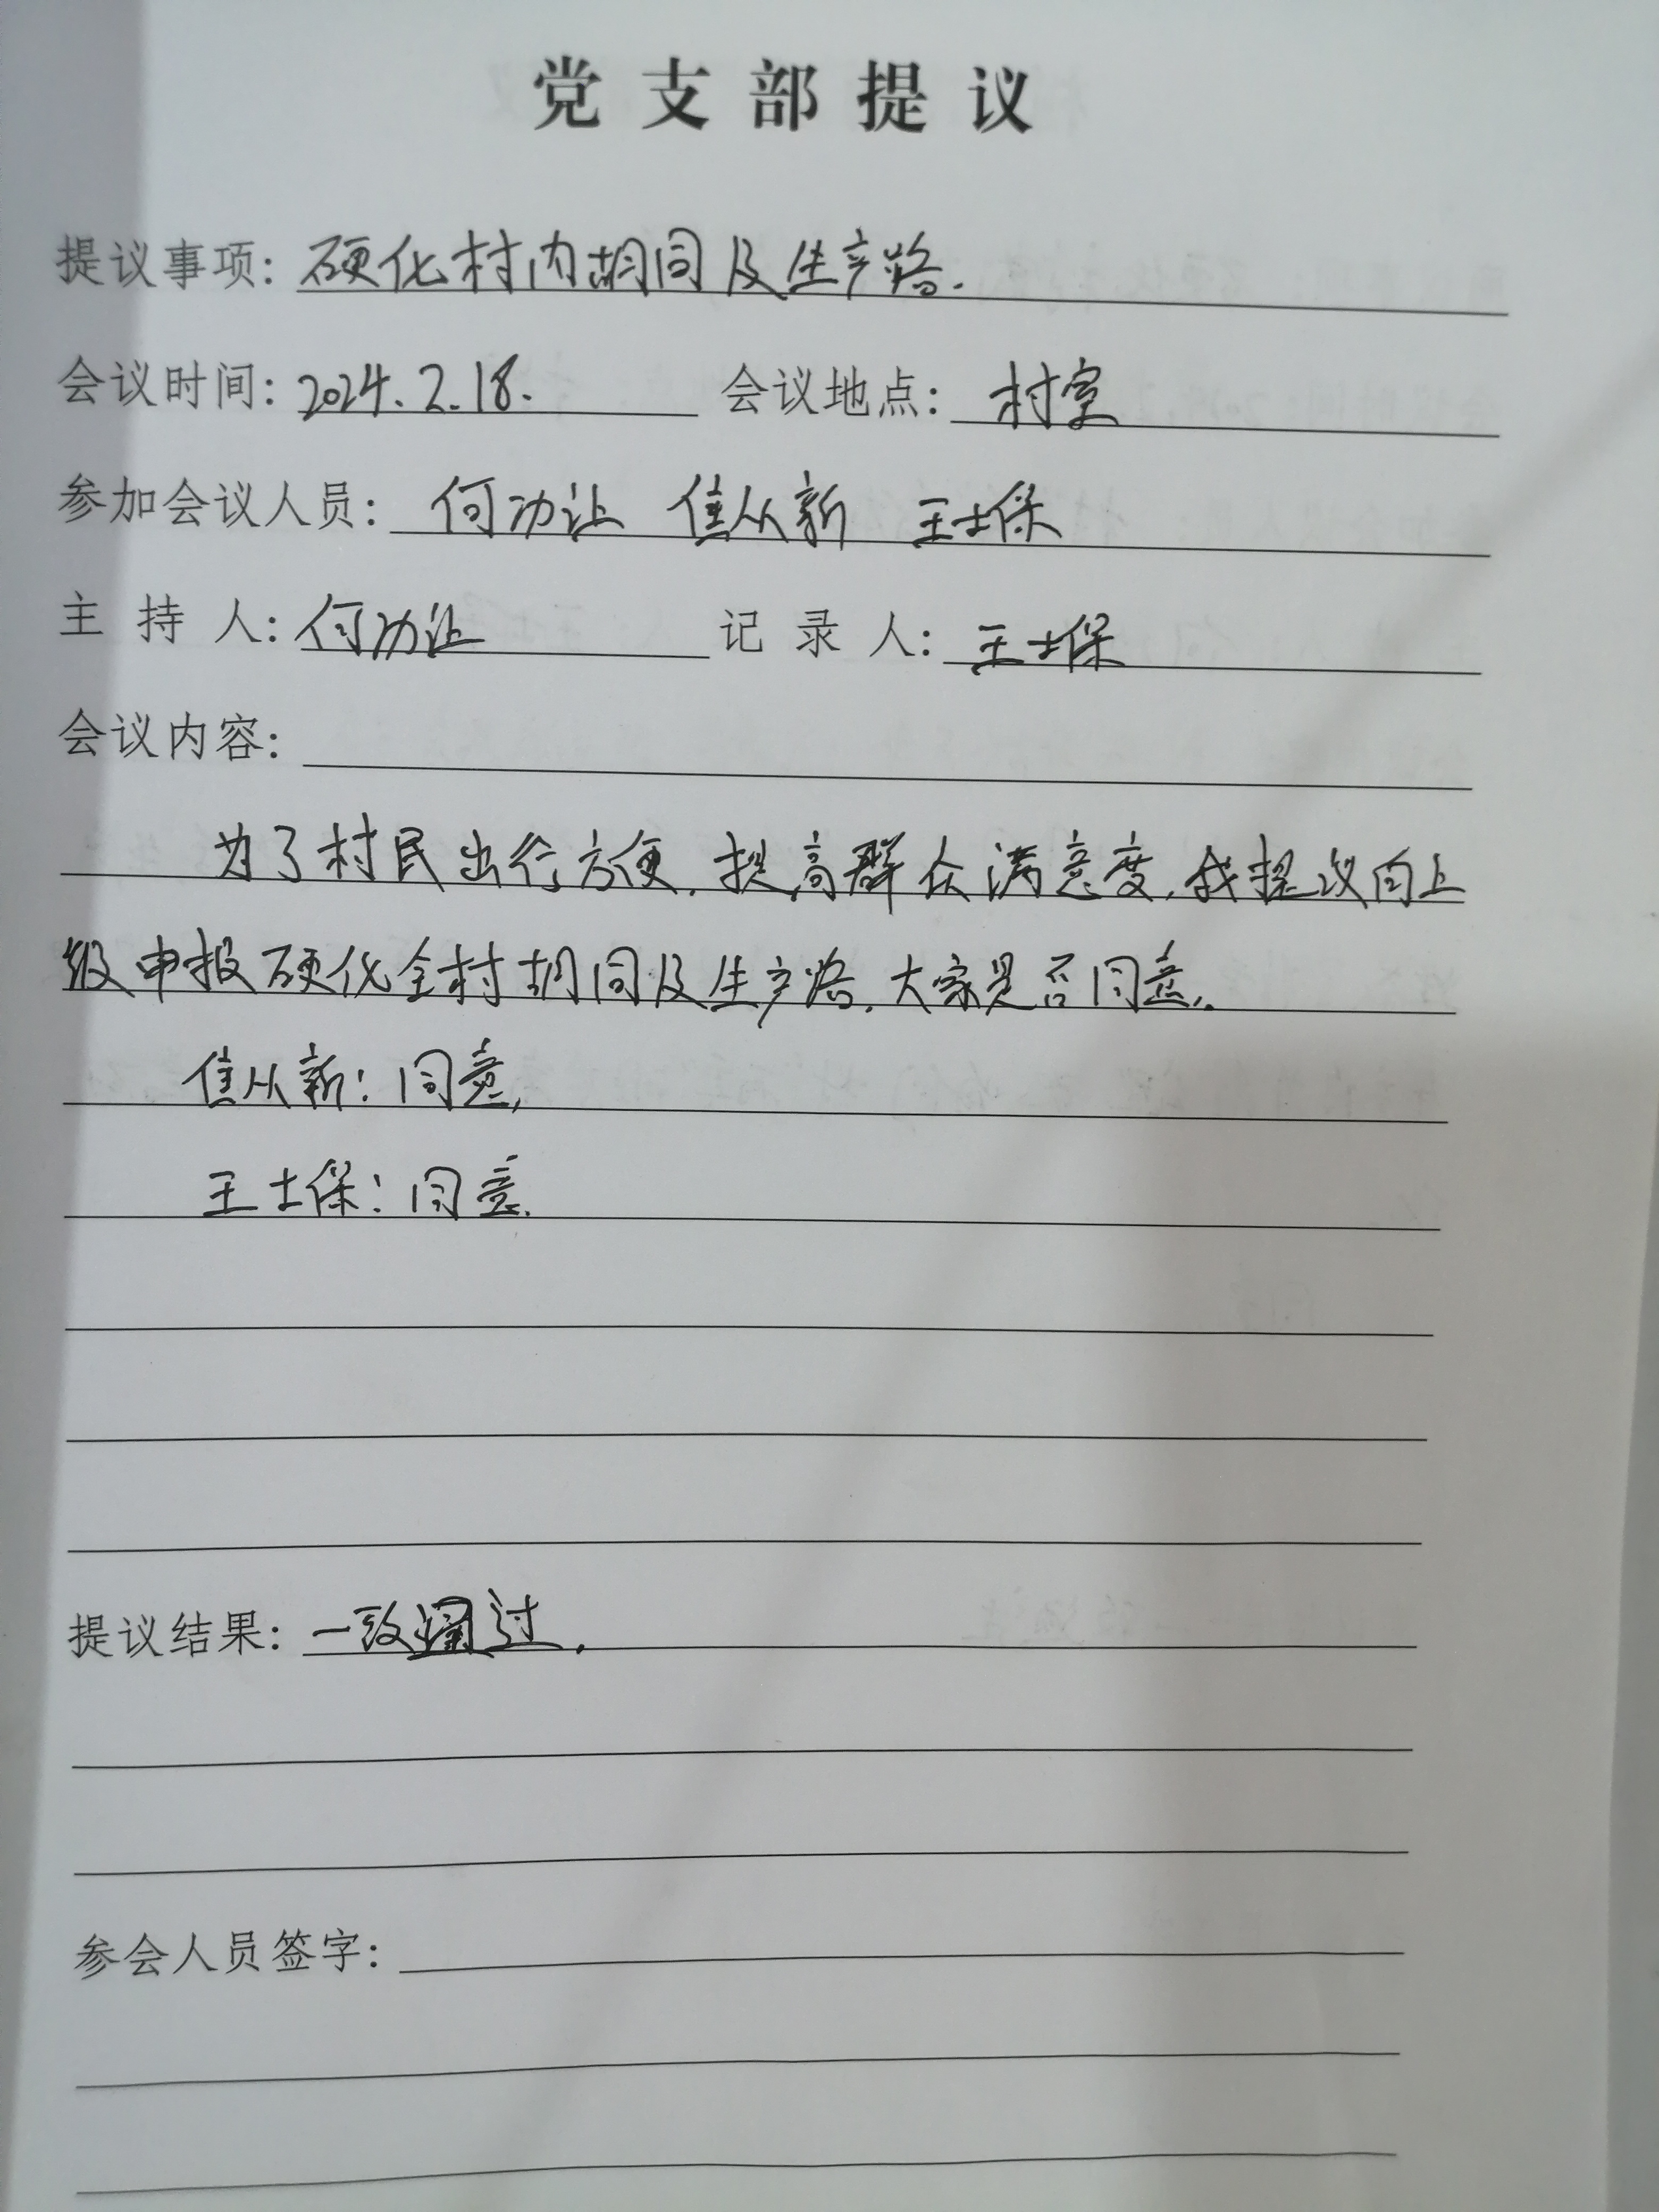 党支部提议
提议事项：硬化村内胡同及生产路.
会议时间：2024.2.18. 会议地点：村室
参加会议人员：何功让 焦从新 王士保
主持人：何功让 记录人：王士保
会议内容：
为了村民出行方便.提高群众满意度,我提议向上
级申报硬化全村胡同及生产路.大家是否同意.
焦从新：同意,
王士保：同意.
提议结果：一致通过.
参会人员签字：